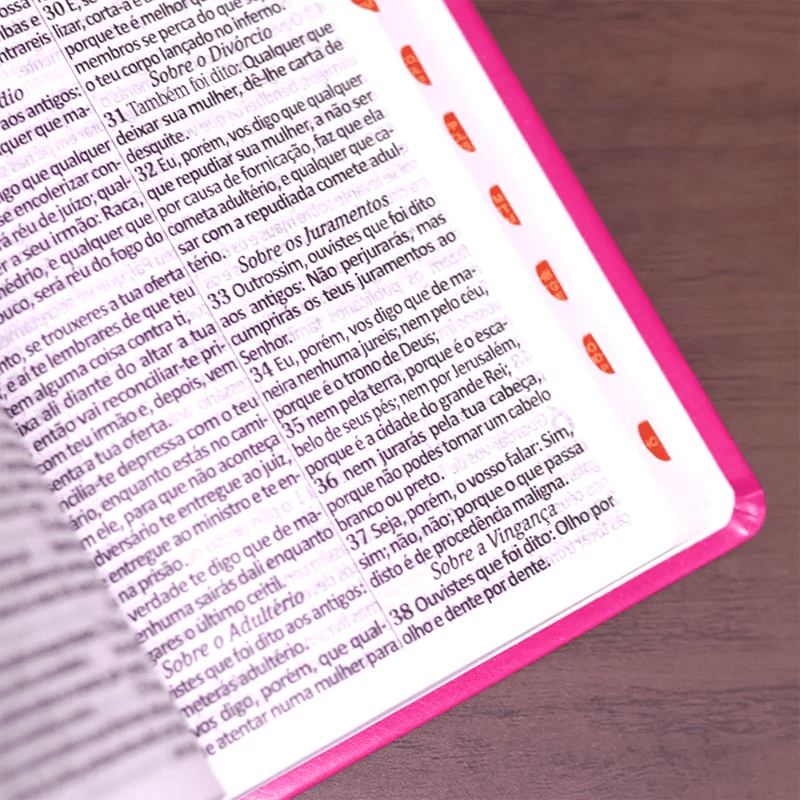 ossa
ribas e
ntrareis
dio
aos antigos:
quer que ma-
igo que qualquer
se encolerizar con-
rá réu de juízo; qual-
er a seu irmão: Raca,
nédrio, e qualquer que
ouco, será réu do fogo do
nto, se trouxeres a tua oferta
, e aí te lembrares de que teu
em alguma coisa contra ti,
ixa ali diante do altar a tua
então vai reconciliar-te pri-
om teu irmão e, depois, vem
enta a tua oferta.
ncilia-te depressa com o teu
ário, enquanto estás no cami-
m ele, para que não aconteça
dversário te entregue ao juiz,
entregue ao ministro e te en-
na prisão.
verdade te digo que de ma-
enhuma sairás dali enquanto
gares o último ceitil.
Sobre o Adultério
istes que foi dito aos antigos:
meterás adultério.
vos digo, porém, que qual-
e atentar numa mulher para
30 E, se
lizar, corta-a e
porque te é melhor que
membros se perca do que se
o teu corpo lançado no inferno.
Sobre o Divórcio
31 Também foi dito: Qualquer que
deixar sua mulher, dê-lhe carta de
desquite.
32 Eu, porém, vos digo que qualquer
que repudiar sua mulher, a não ser
por causa de fornicação, faz que ela
cometa adultério, e qualquer que ca-
sar com a repudiada comete adul-
tério.
Sobre os Juramentos
33 Outrossim, ouvistes que foi dito
aos antigos: Não perjurarás, mas
cumprirás os teus juramentos ao
Senhor.
34 Eu, porém, vos digo que de ma-
neira nenhuma jureis; nem pelo céu,
porque é o trono de Deus;
35 nem pela terra, porque é o esca-
belo de seus pés; nem por Jerusalém,
porque é a cidade do grande Rei;
36 nem jurarás pela tua cabeça,
porque não podes tornar um cabelo
branco ou preto.
37 Seja, porém, o vosso falar: Sim,
sim; não, não; porque o que passa
disto é de procedência maligna.
Sobre a Vingança
38 Ouvistes que foi dito: Olho por
olho e dente por dente.